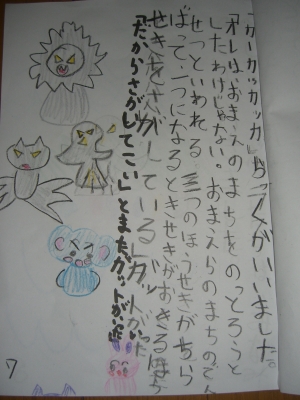 「カーカッカッカ」らっくがいいました。
「オレは、おまえのまちをのっとろうと
したわけじゃない。おまえらのまちのでん
せつといわれる三つのほうせきがちら
ばって一つになるときせきがおきるほう
せきをさがしている」ガットがいった
「だからさがしてこい」とまたガットがいった
7